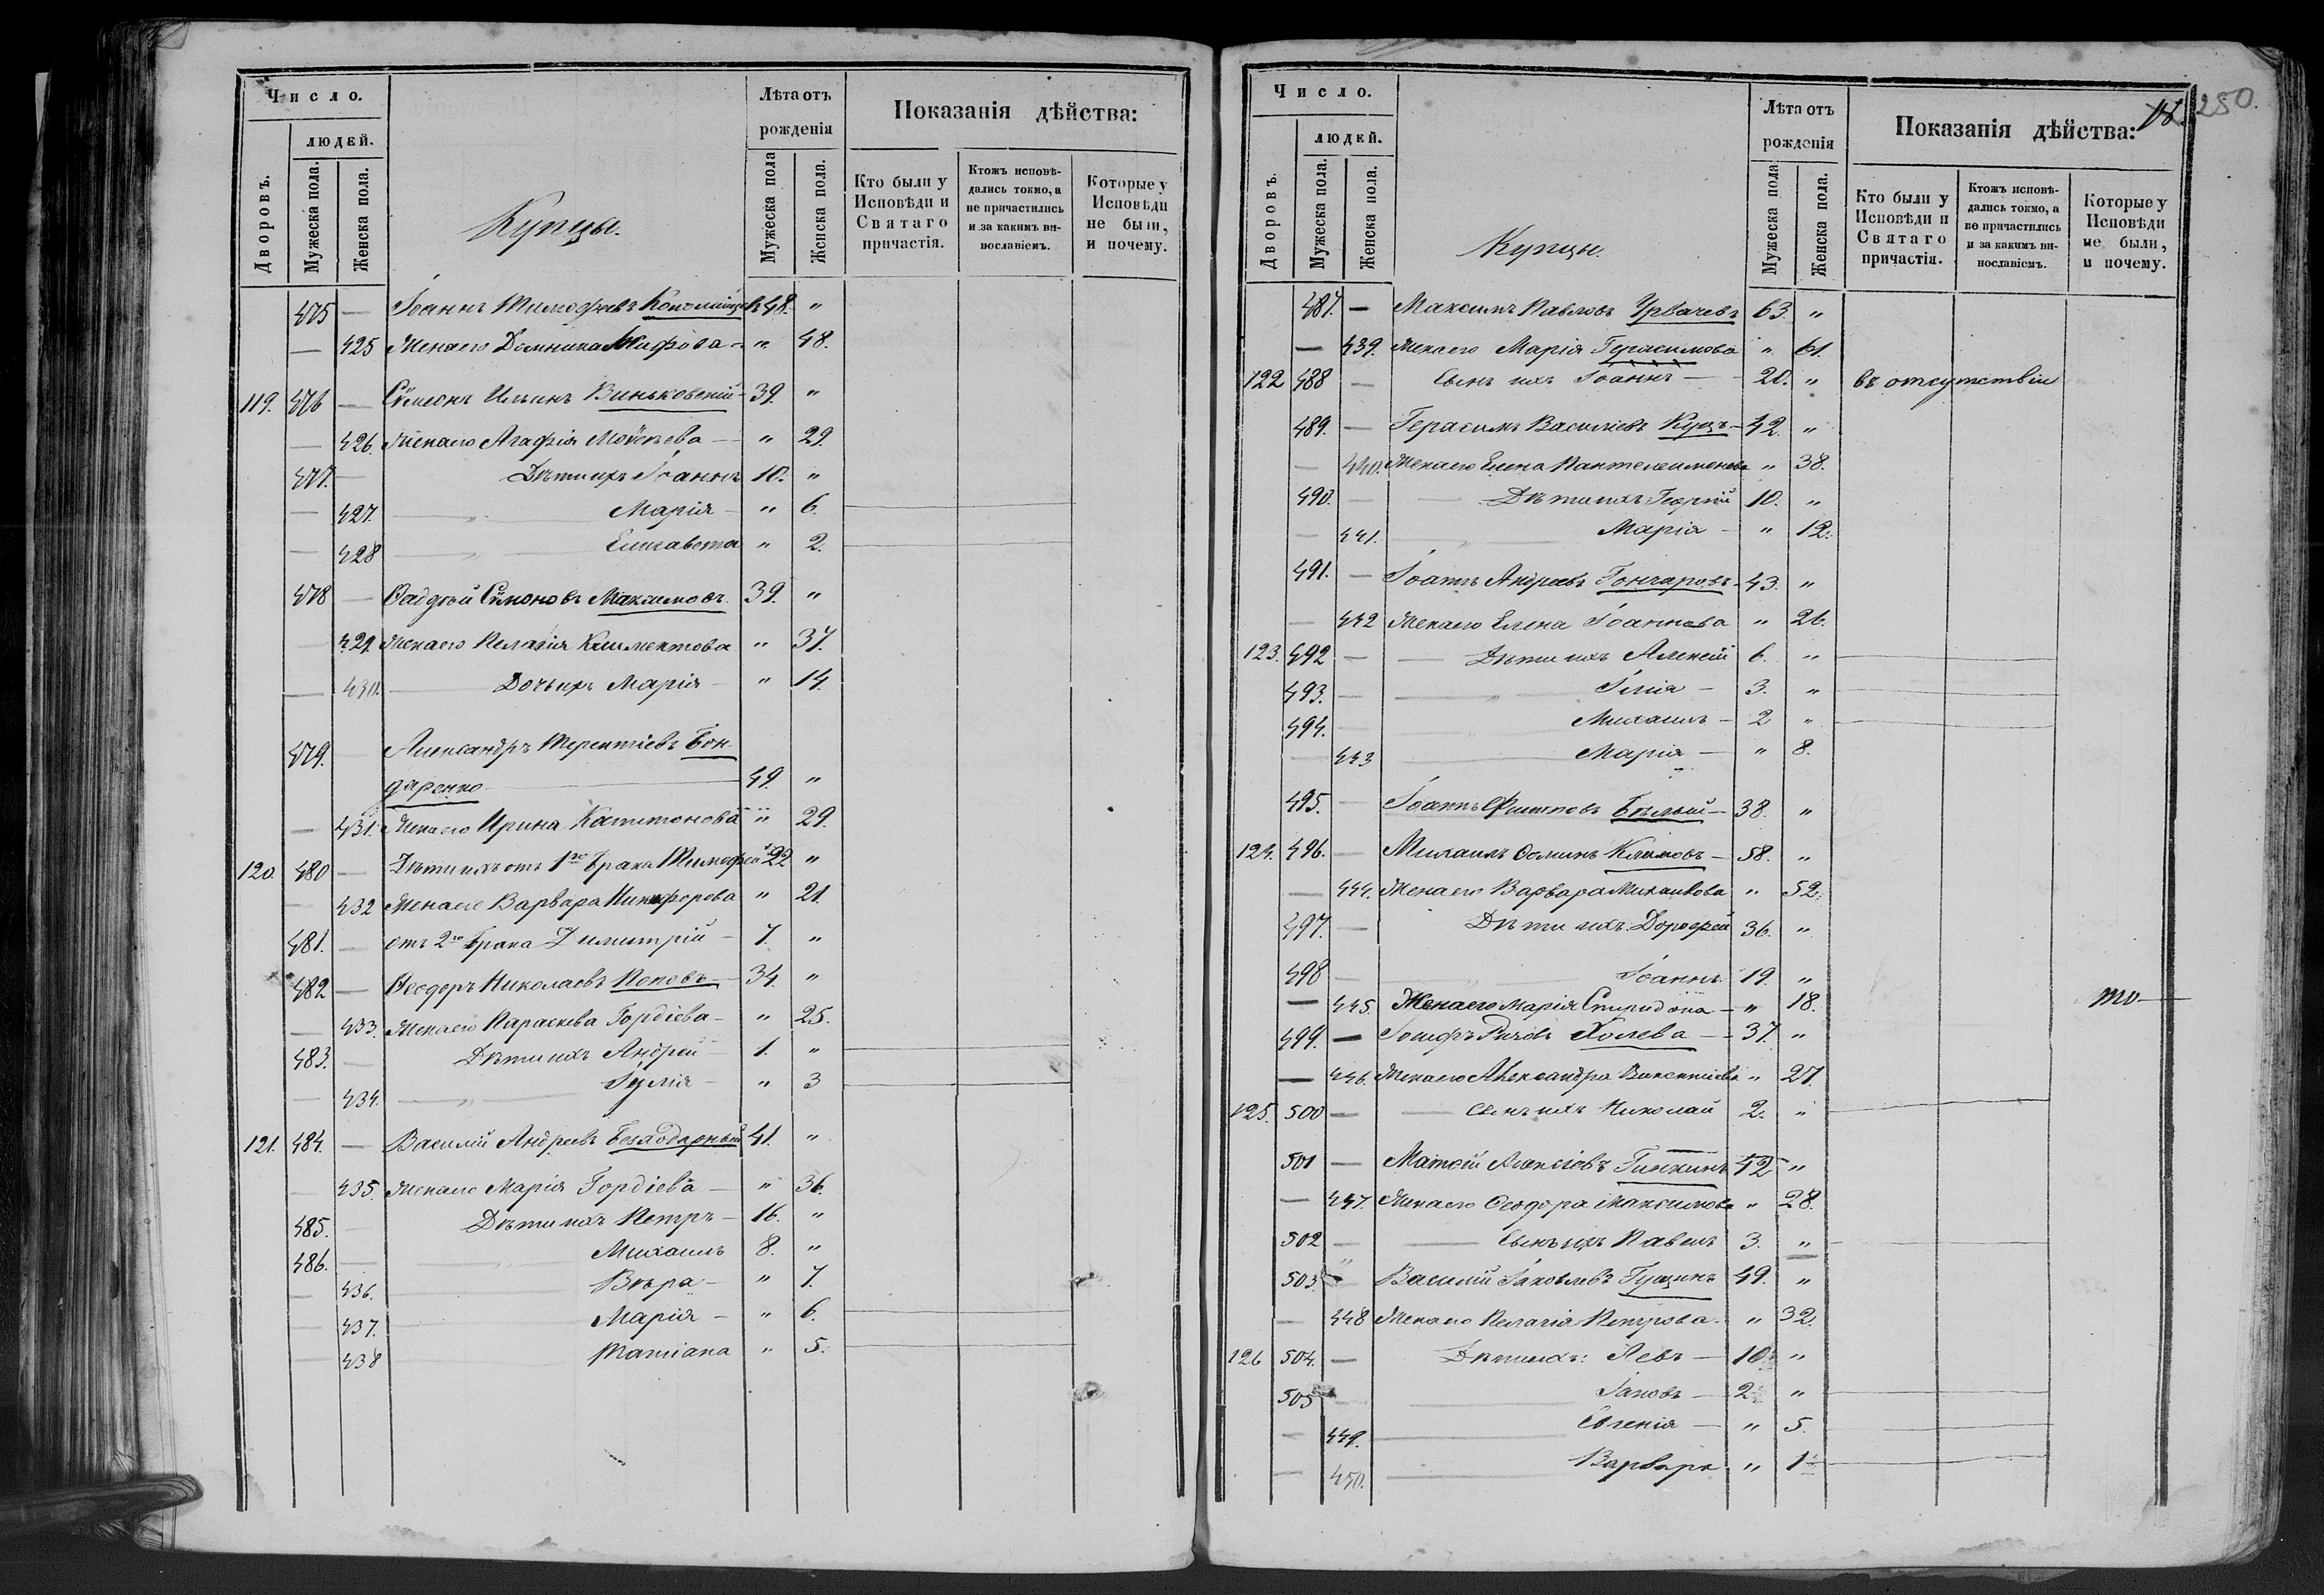 Число.
людей.
Дворовъ.
Мужеска пола.
Женска пола.
Купцы.
Лѣта отъ рожденія
Мужеска пола
Женска пола.
Показанія дѣйства:
Кто были у Исповѣди и Святаго причастія.
Ктожъ исповѣдались токмо, а не причастились и за какимъ винословіемъ.
Которые у Исповѣди не были, и почему.
475 — Іоаннъ Тимофеевъ 48. "
— 425 Жена его Домника " 48.
119. 476 — Сѵмеонъ Ильинъ Виньковскій 39. "
— 426. Жена его Агафія Моѵсеева — " 29.
477. — Дѣти ихъ Іоаннъ 10. "
— 427. — " — Марія — " 6.
— 428 — " — Елисавета " 2.
478 — Фаддей Сѵмоновъ Максимовъ. 39. "
— 429. Жена его Пелагія Климентова " 37.
— 430. — Дочь ихъ Марія — " 14.
479. — Александръ Терентіевъ Бон-
даренко — 49. "
— 431. Жена его Ирина Капитонова " 29.
120. 480 — Дѣти ихъ отъ 1го брака Тимофей 22 "
— 432 Жена его Варвара Никифорова " 21.
481. — отъ 2го брака Димитрій — 7. "
482 — Феодоръ Николаевъ Поповъ — 34. "
— 433. Жена его Параскева Гордіева — " 25.
483. — Дѣти ихъ Андрей — 1. "
— 434. — " — Іулія — " 3
121. 484. — Василій Андреевъ 41. "
— 435. Жена его Марія Гордіева — " 36.
485. — Дѣти ихъ Петръ — 16. "
486. — Михаилъ 8. "
— 436. — Вѣра — " 7.
— 437. — Марія — " 6.
— 438 — Татіана " 5.
250.
Число.
людей.
Дворовъ.
Мужеска пола.
Женска пола.
Купцы.
Лѣта отъ рожденія
Мужеска пола
Женска пола.
Показанія дѣйства:
Кто были у Исповѣди и Святаго причастія.
Ктожъ исповѣдались токмо, а не причастились и за какимъ винословіемъ.
Которые у Исповѣди не были, и почему.
487. — Максимъ Павловъ Урвачевъ 63. "
— 439. Жена его Марія Герасимова " 61.
122 488 — Сынъ ихъ Іоаннъ — 20. " въ отсутствіи
489. — Герасимъ Васильевъ Куцъ — 42. "
— 440. Жена его Елена Пантелеимонова " 38.
490. — Дѣти ихъ Георгій 10. "
— 441. — " — Марія — " 12.
491. — Іоаннъ Андреевъ Гончаровъ — 43. "
— 442 Жена его Елена Іоаннова " 26.
123. 492 — Дѣти ихъ Алексій 6. "
493. — " — Илія — 3. "
494. — Михаилъ — 2 "
— 443 — Марія — " 8.
495. — Іоаннъ Филиповъ Бѣлый — 38. "
124. 496. — Михаилъ Фоминъ Климовъ — 58. "
— 444. Жена его Варвара Михаилова " 52.
497. — Дѣти ихъ Дорофей 36. "
498 — Іоаннъ 19. "
— 445. Жена его Марія — " 18. то —
499. — Іосифъ Холева — 37. "
— 446. Жена его Александра Викентіева " 27.
125. 500 — Сынъ ихъ Николай 2. "
501 — Матѳій 42 "
— 447. Жена его Феодора Максимова " 28.
502 — Сынъ ихъ Павелъ 3. "
503. — Василій Іаковлевъ Гущинъ 49. "
— 448 Жена его Пелагія Петрова " 32.
126 504. — Дѣти ихъ: Левъ — 10. "
505 — Іаковъ — 2 "
— 449. — Евгенія — " 5.
— 450. — Варвара " 1